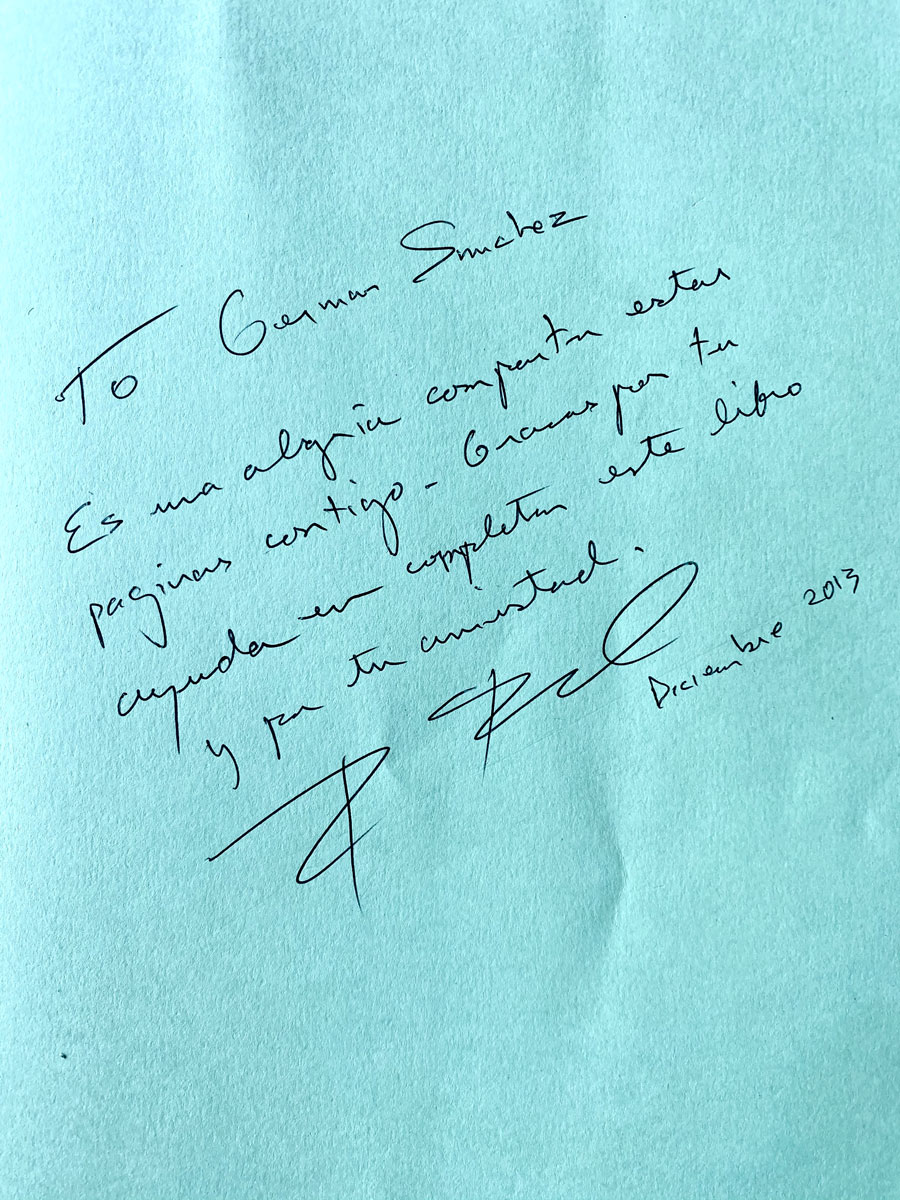 To German Sanchez
Es una alegria compartir estas
paginas contigo - Gracias por tu
ayuda en completar este libro
y por tu amistad.
Diciembre 2013